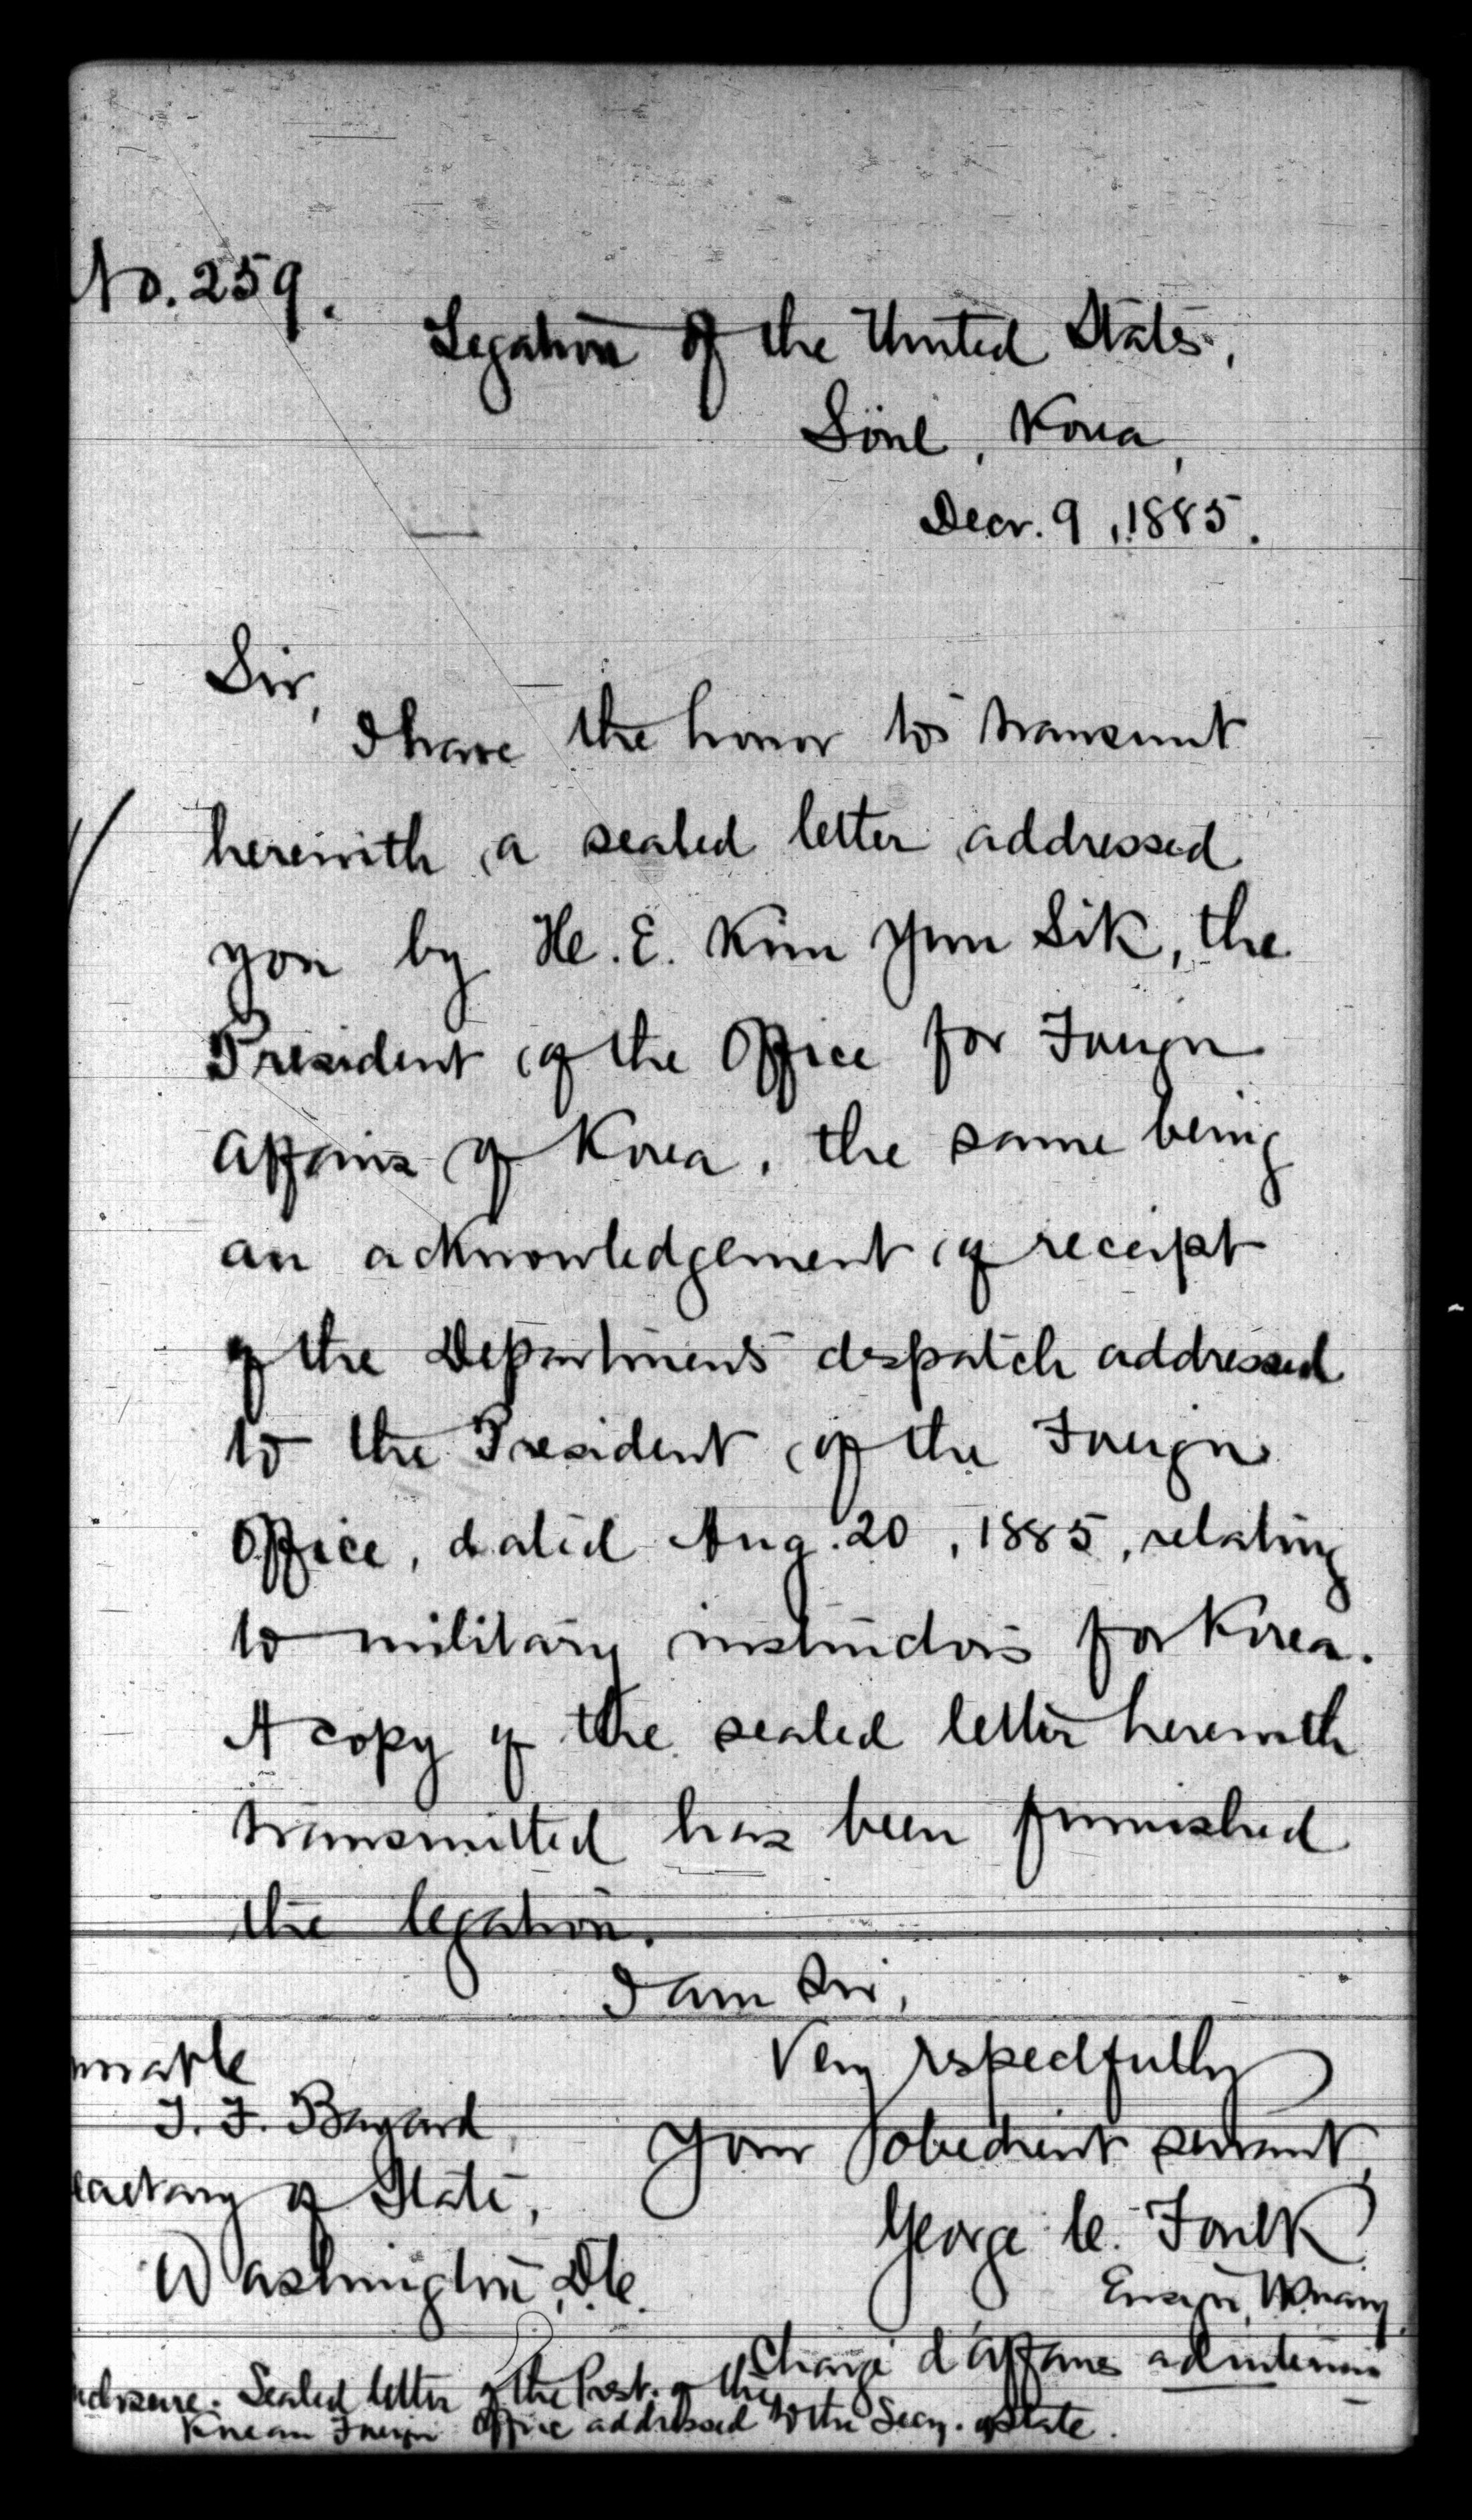 No. 259.
Legation of the United States,
Söul, Korea,
Decr. 9, 1885.
Sir,
I have the honor to transmit
herewith a sealed letter addressed
you by H.E. Kim Yun Sik, the
President of the Office for Foreign
Affairs of Korea, the same being
an acknowledgement of receipt
of the Department's despatch addressed
to the President of the Foreign
Office, dated Aug. 20, 1885, relating
to military instructors for Korea.
A copy of the sealed letter herewith
transmitted has been furnished
the legation.
I am Sir,
Very respectfully
Your obedient servant,
George C. Foulk
Ensign, U.S. Navy,
Chargé d'Affaires ad interim
norable
T. F. Bayard,
ecretary of State,
Washington, D.C.
nclosure. Sealed letter of the Prest. of the
Korean Foreign Office addressed to the Secy. of State.